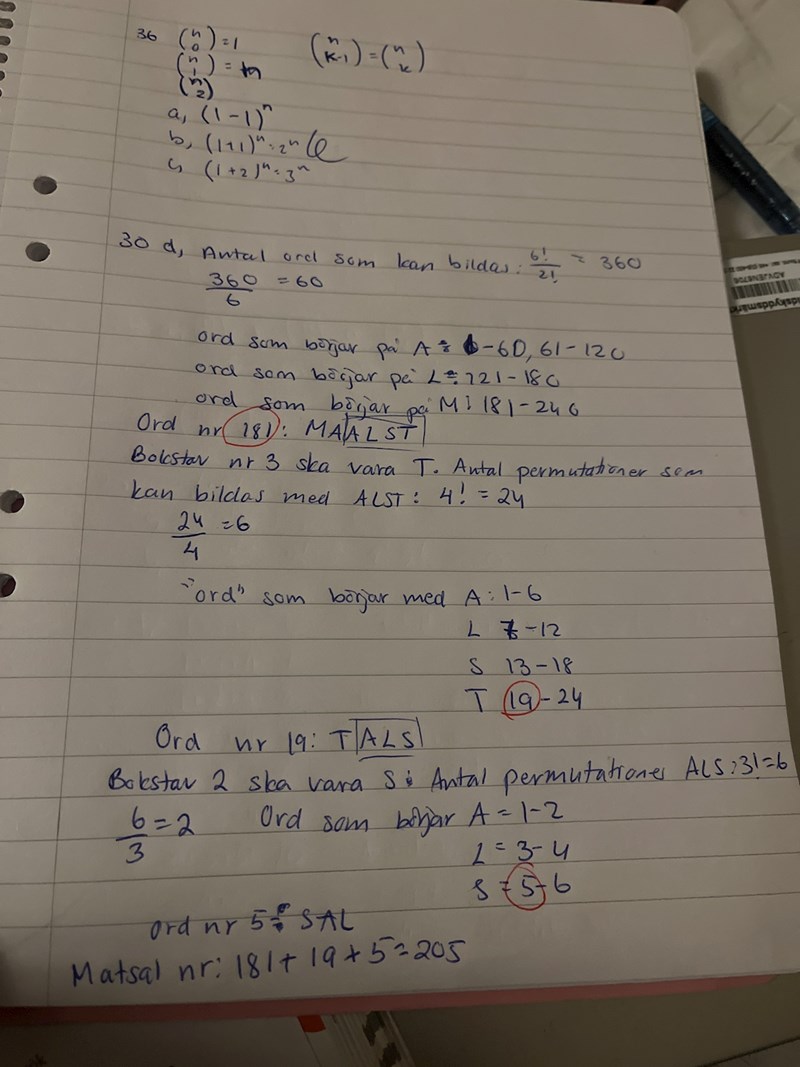 36 (n 0) = 1 (n k-1) = (n k)
(n 1) = n
(n 2)
a, (1-1)^n
b, (1+1)^n = 2^n
c, (1+2)^n = 3^n
30 d, Antal ord som kan bildas: 6!/2! = 360
360/6 = 60
ord som börjar på A = 1-60, 61-120
ord som börjar på L = 121-180
ord som börjar på M: 181-240
Ord nr 181: MAALST
Bokstav nr 3 ska vara T. Antal permutationer som
kan bildas med ALST: 4! = 24
24/4 = 6
"ord" som börjar med A: 1-6
L 7-12
S 13-18
T 19-24
Ord nr 19: TALS
Bokstav 2 ska vara S: Antal permutationer ALS: 3! = 6
6/3 = 2 Ord som börjar A = 1-2
L = 3-4
S = 5-6
ord nr 5: SAL
Matsal nr: 181+19+5=205